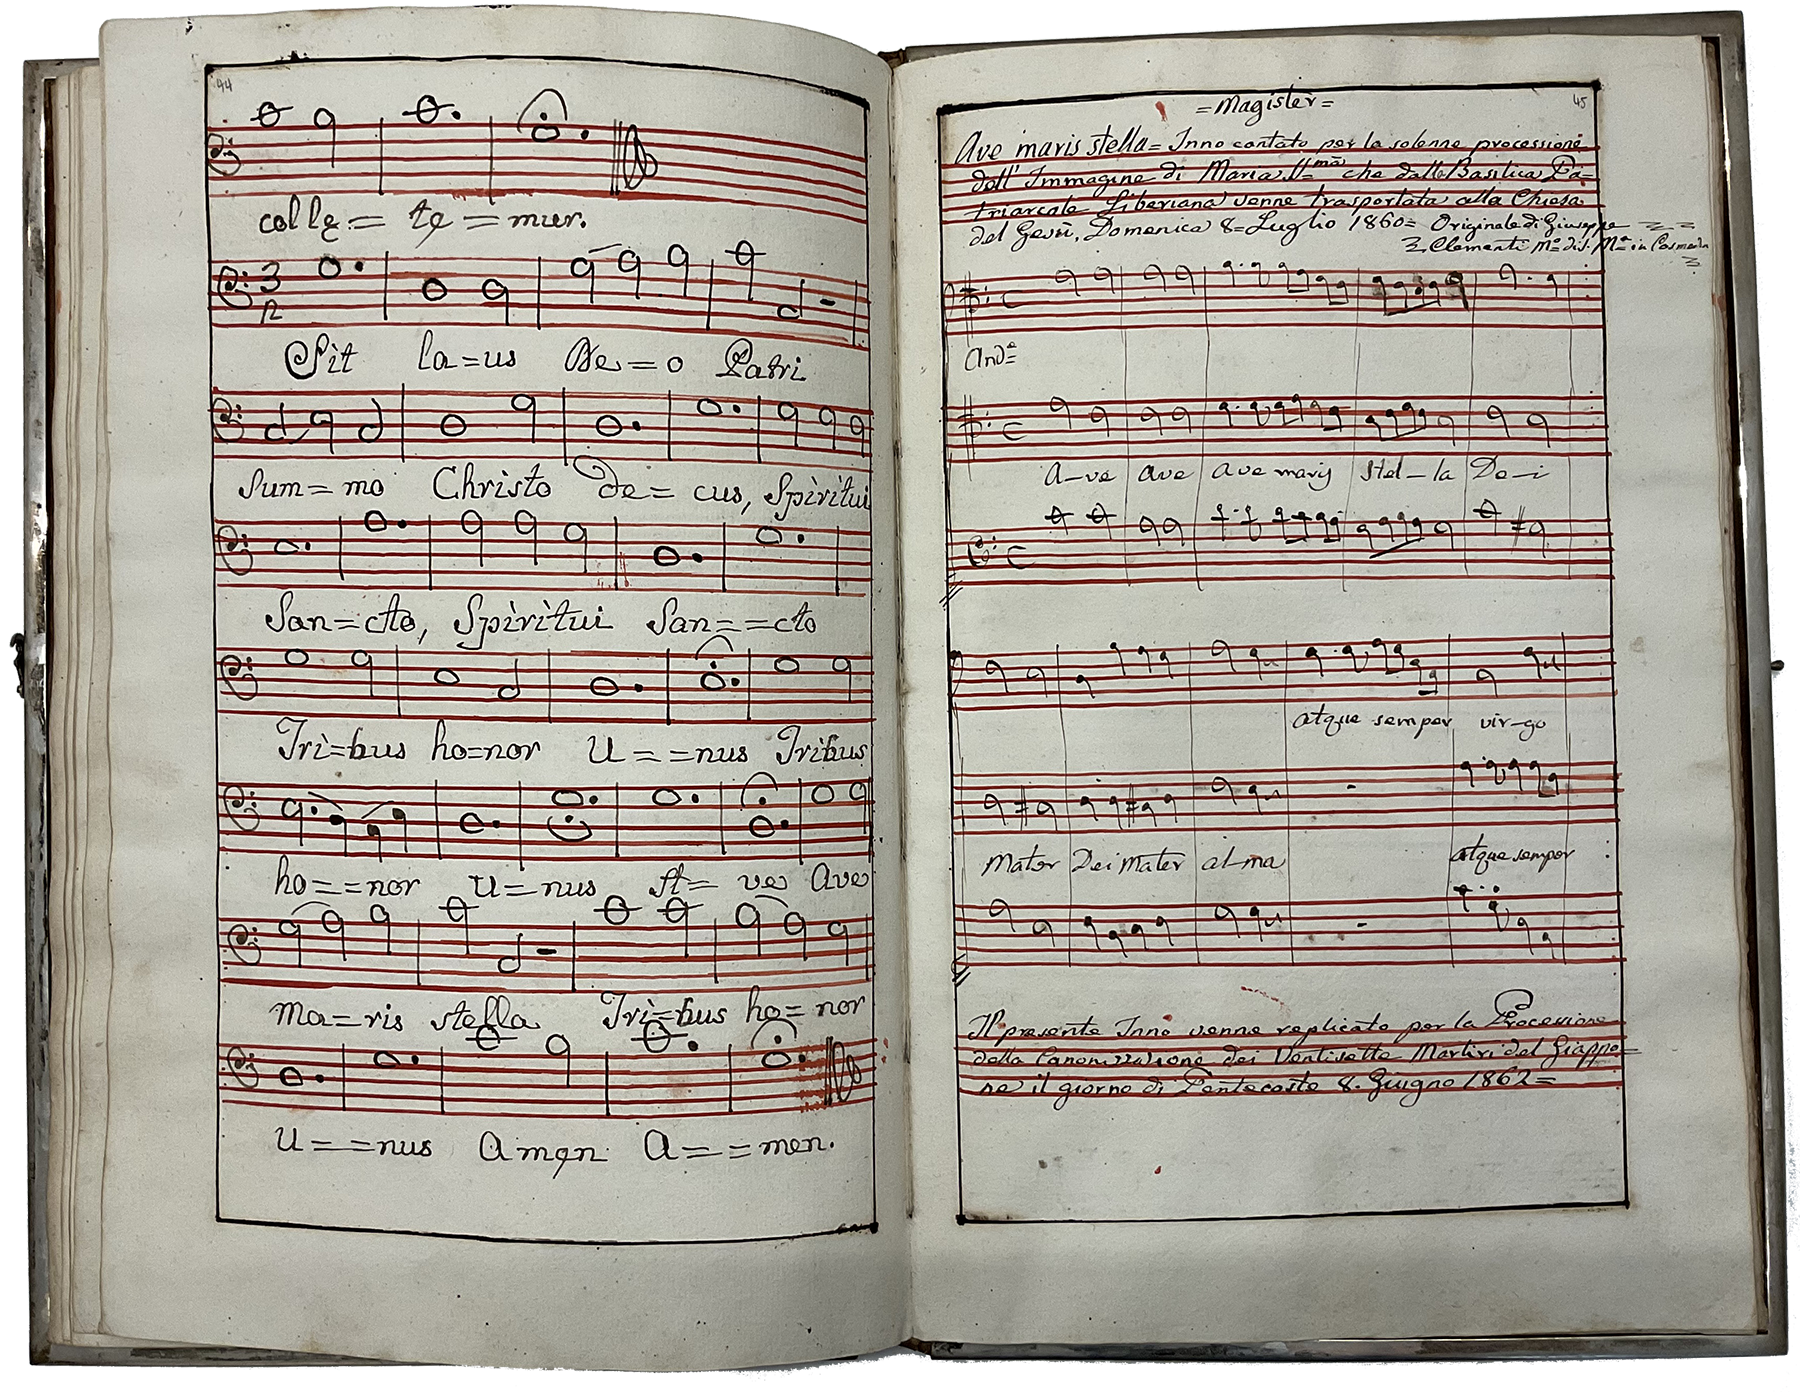 44
collę= tę=mur.
3
2
Sit la=us De=o Patri
Sum=mo Christo de= cus, Spìrìtui
San=cto, Spìrìtui San==cto
Trì=bus ho=nor U==nus Tribus
ho==nor U=nus A= ve Ave
ma=ris stella Trì=bus ho=nor
U==nus Amęn A==men.
45
=Magister=
Ave maris stella= Inno cantato per la solenne processione
dell'Immagine di Maria SS=ma che dalla Basilica Pa=
triarcale Liberiana venne trasportata alla Chiesa
del Gesù, Domenica 8=Luglio 1860= Originale di Giuseppe
Clementi M=o di S. M=a in Cosmedin
And=e
A-ve ave ave maris stel-la De-i
atque semper vir-go
Mater Dei mater al-ma atque semper
Il presente Inno venne replicato per la Processione
della Canonizzazione dei Ventisette Martiri del Giappo=
ne il giorno di Pentecoste 8. Giugno 1862=